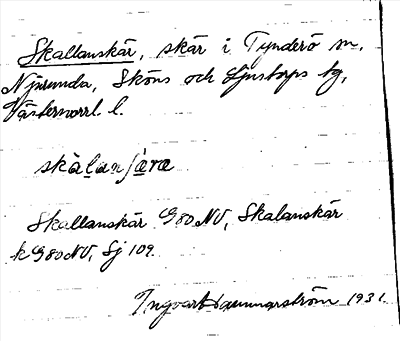 Skallanskär, skär i Tynderö sn,
Njurunda, Sköns och Ljustorps tg,
Västernorrl. l.
Skallanskär G80NV, Skalanskär
k G80NV, Sj 109.
Ingvar Hammarström 1931